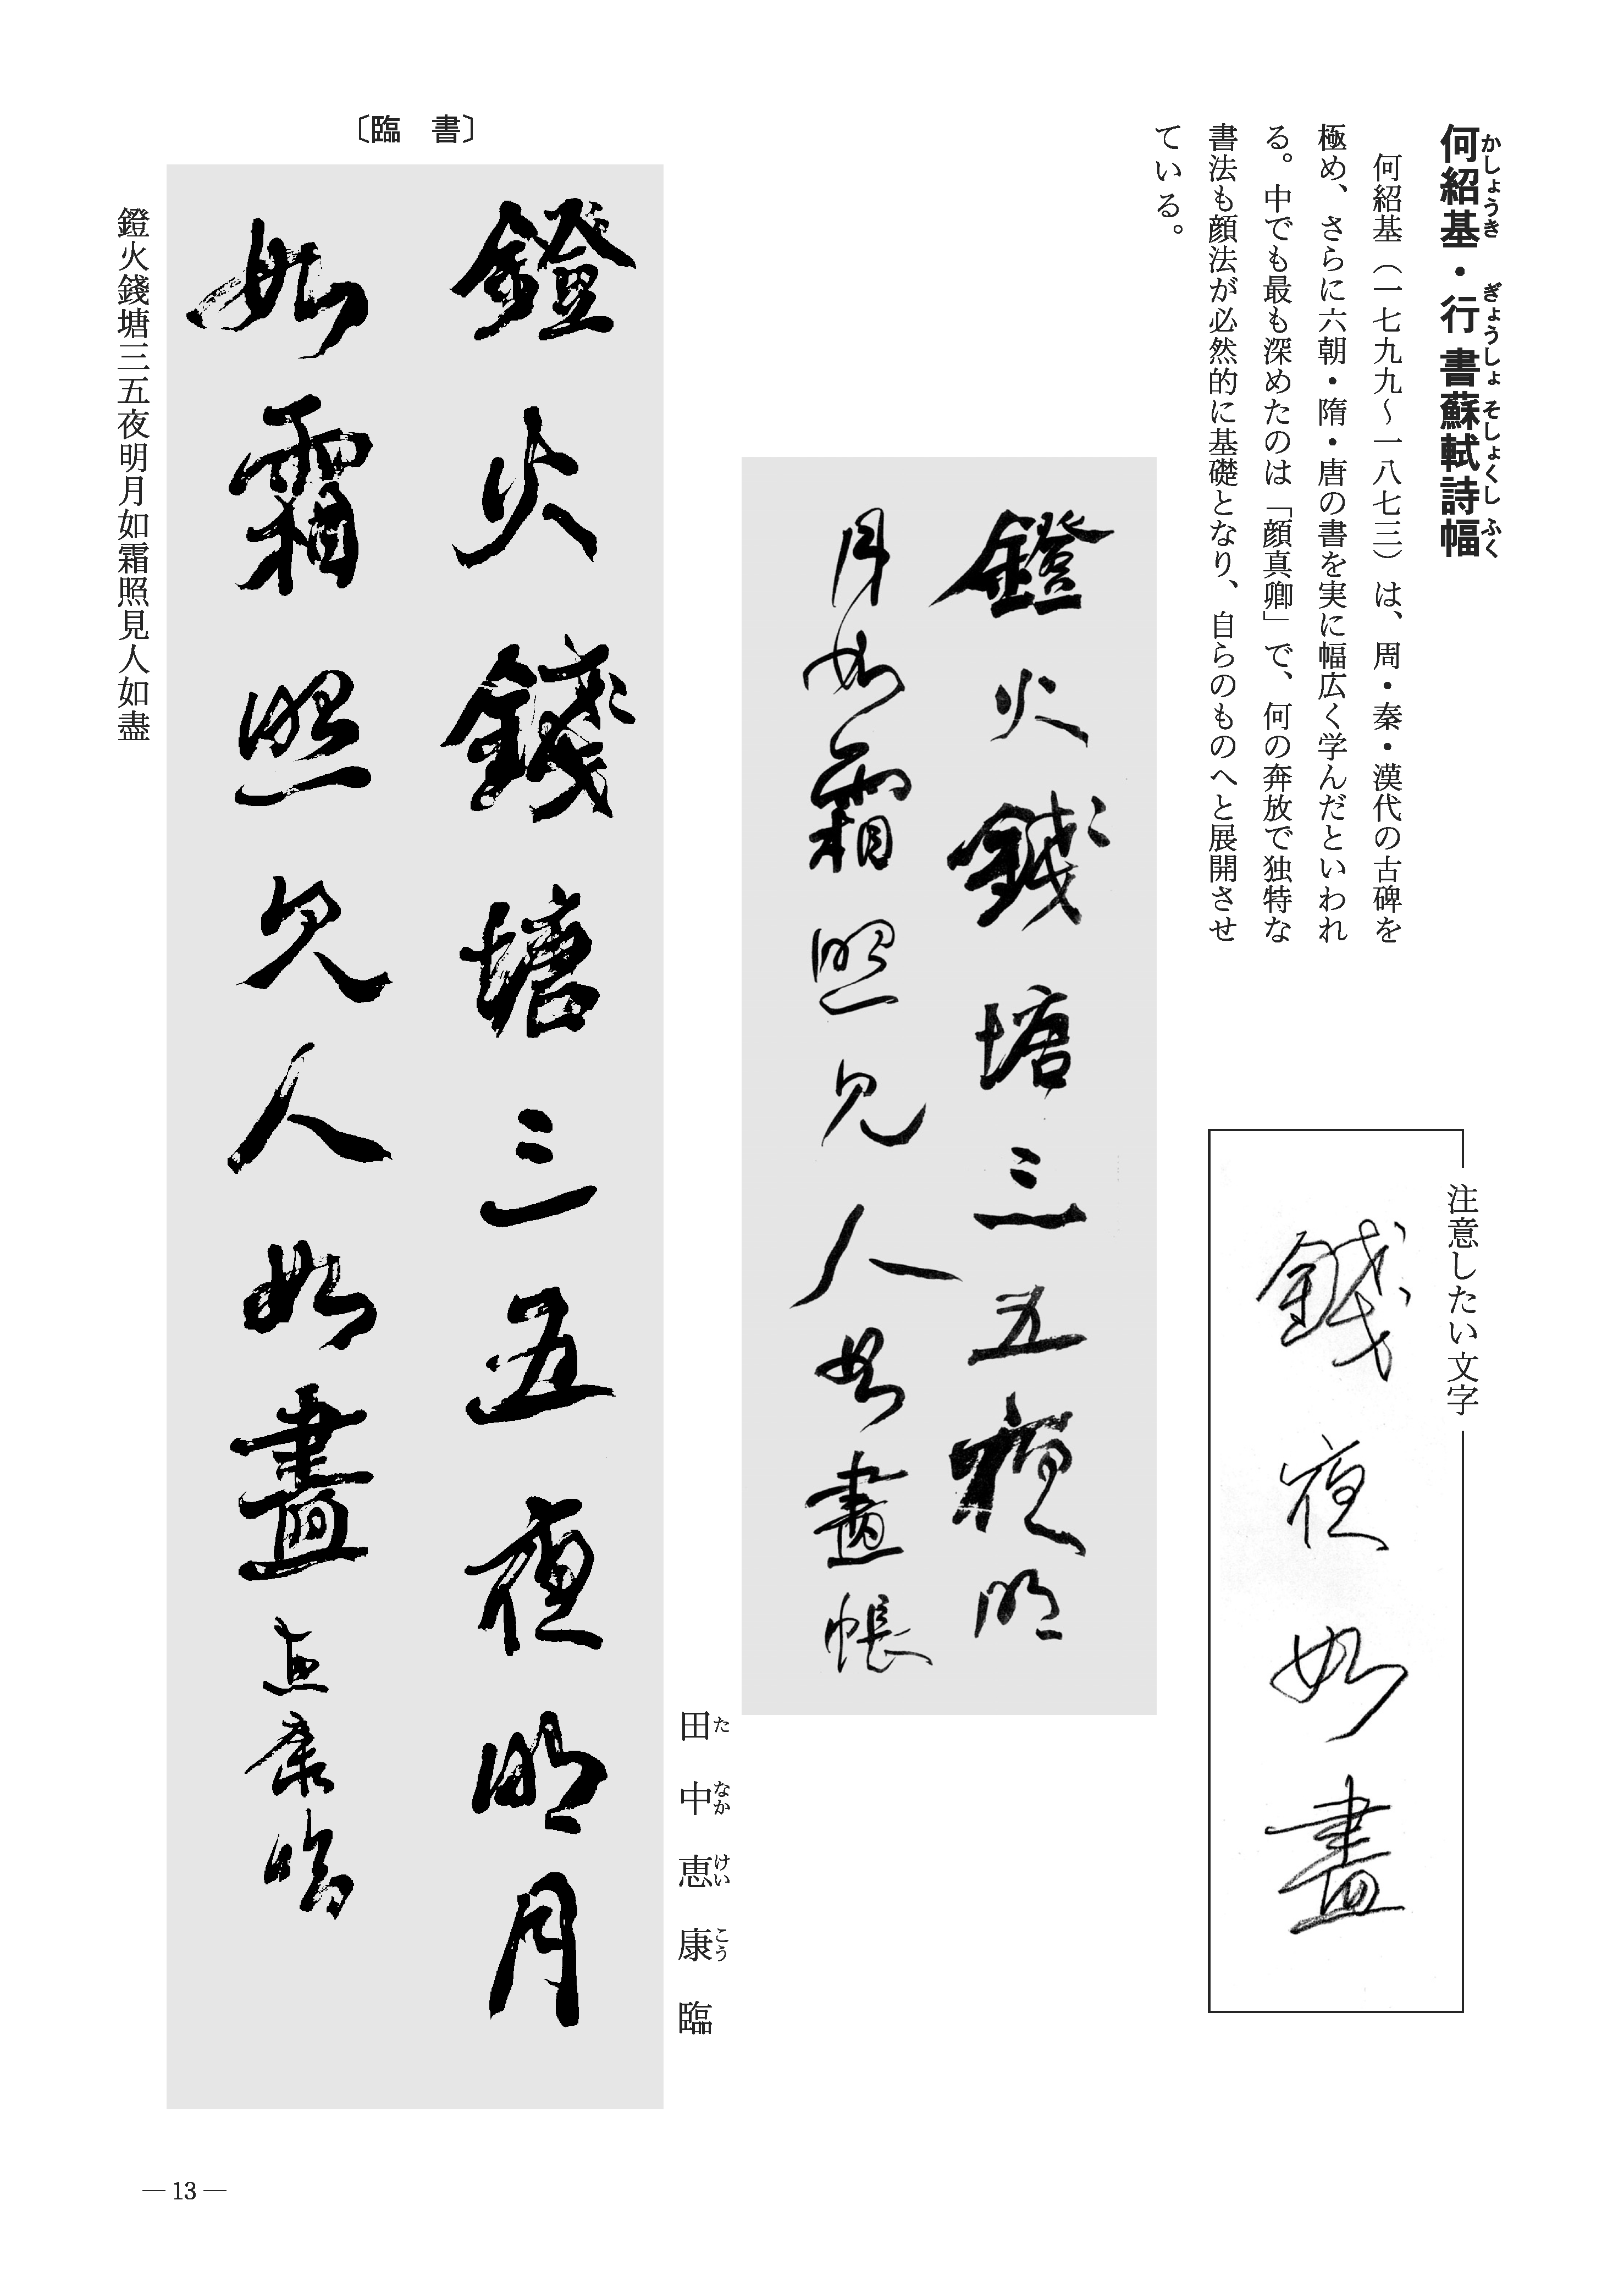 何紹基・行書蘇軾詩幅
かしょうき ぎょうしょ そしょくし ふく
何紹基（一七九九～一八七三）は、周・秦・漢代の古碑を
極め、さらに六朝・隋・唐の書を実に幅広く学んだといわれ
る。中でも最も深めたのは「顔真卿」で、何の奔放で独特な
書法も顔法が必然的に基礎となり、自らのものへと展開させ
ている。
注意したい文字
錢夜如畫
鐙火錢塘三五夜明
月如霜照見人如畫帳
田中恵康臨
た なか けい こう
〔臨 書〕
鐙火錢塘三五夜明月
如霜照見人如畫 恵康臨
鐙火錢塘三五夜明月如霜照見人如盡
— 13 —